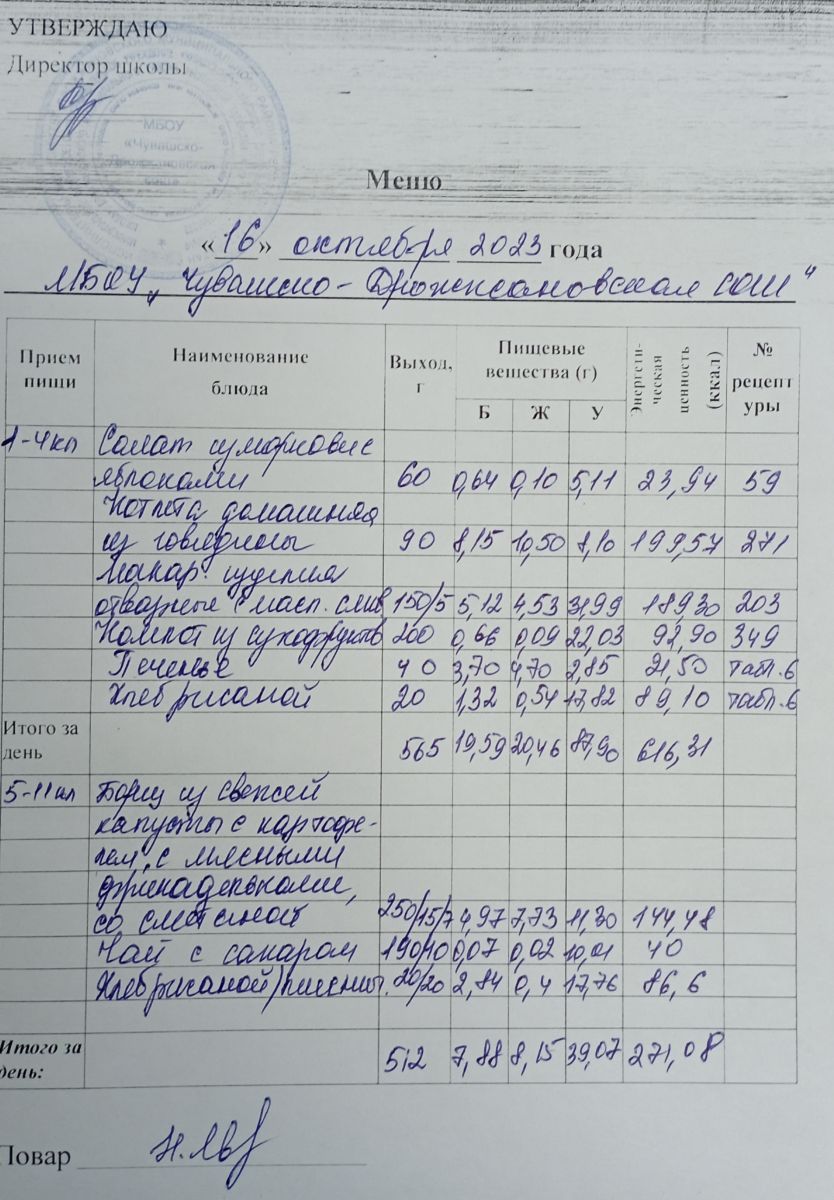 УТВЕРЖДАЮ
Директор школы
МБОУ
«Чувашско-
Дрожжановская
Меню
«16» октября 2023 года
МБОУ „Чувашско-Дрожжановская СОШ"
Прием пищи Наименование блюда Выход, г Пищевые вещества (г) Б Ж У Энергетическая ценность (ккал) № рецептуры
1-4кл Салат из моркови с
яблоками 60 0,64 0,10 5,11 23,94 59
Котлета домашняя
из говядины 90 8,15 10,50 8,10 199,57 271
Макар. изделия
отварные с масл. слив 150/5 5,12 4,53 31,99 189,30 203
Компот из сухофруктов 200 0,66 0,09 22,03 92,90 349
Печенье 40 3,70 4,70 2,85 21,50 табл.6
Хлеб ржаной 20 1,32 0,54 17,82 89,10 табл.6
Итого за день 565 19,59 20,46 87,90 616,31
5-11кл Борщ из свежей
капусты с картофе-
лем, с мясными
фрикадельками,
со сметаной 250/15/7 4,97 7,73 11,30 144,48
Чай с сахаром 190/10 0,07 0,02 10,01 40
Хлеб ржаной/пшенич. 20/20 2,84 0,4 17,76 86,6
Итого за день: 512 7,88 8,15 39,07 271,08
Повар